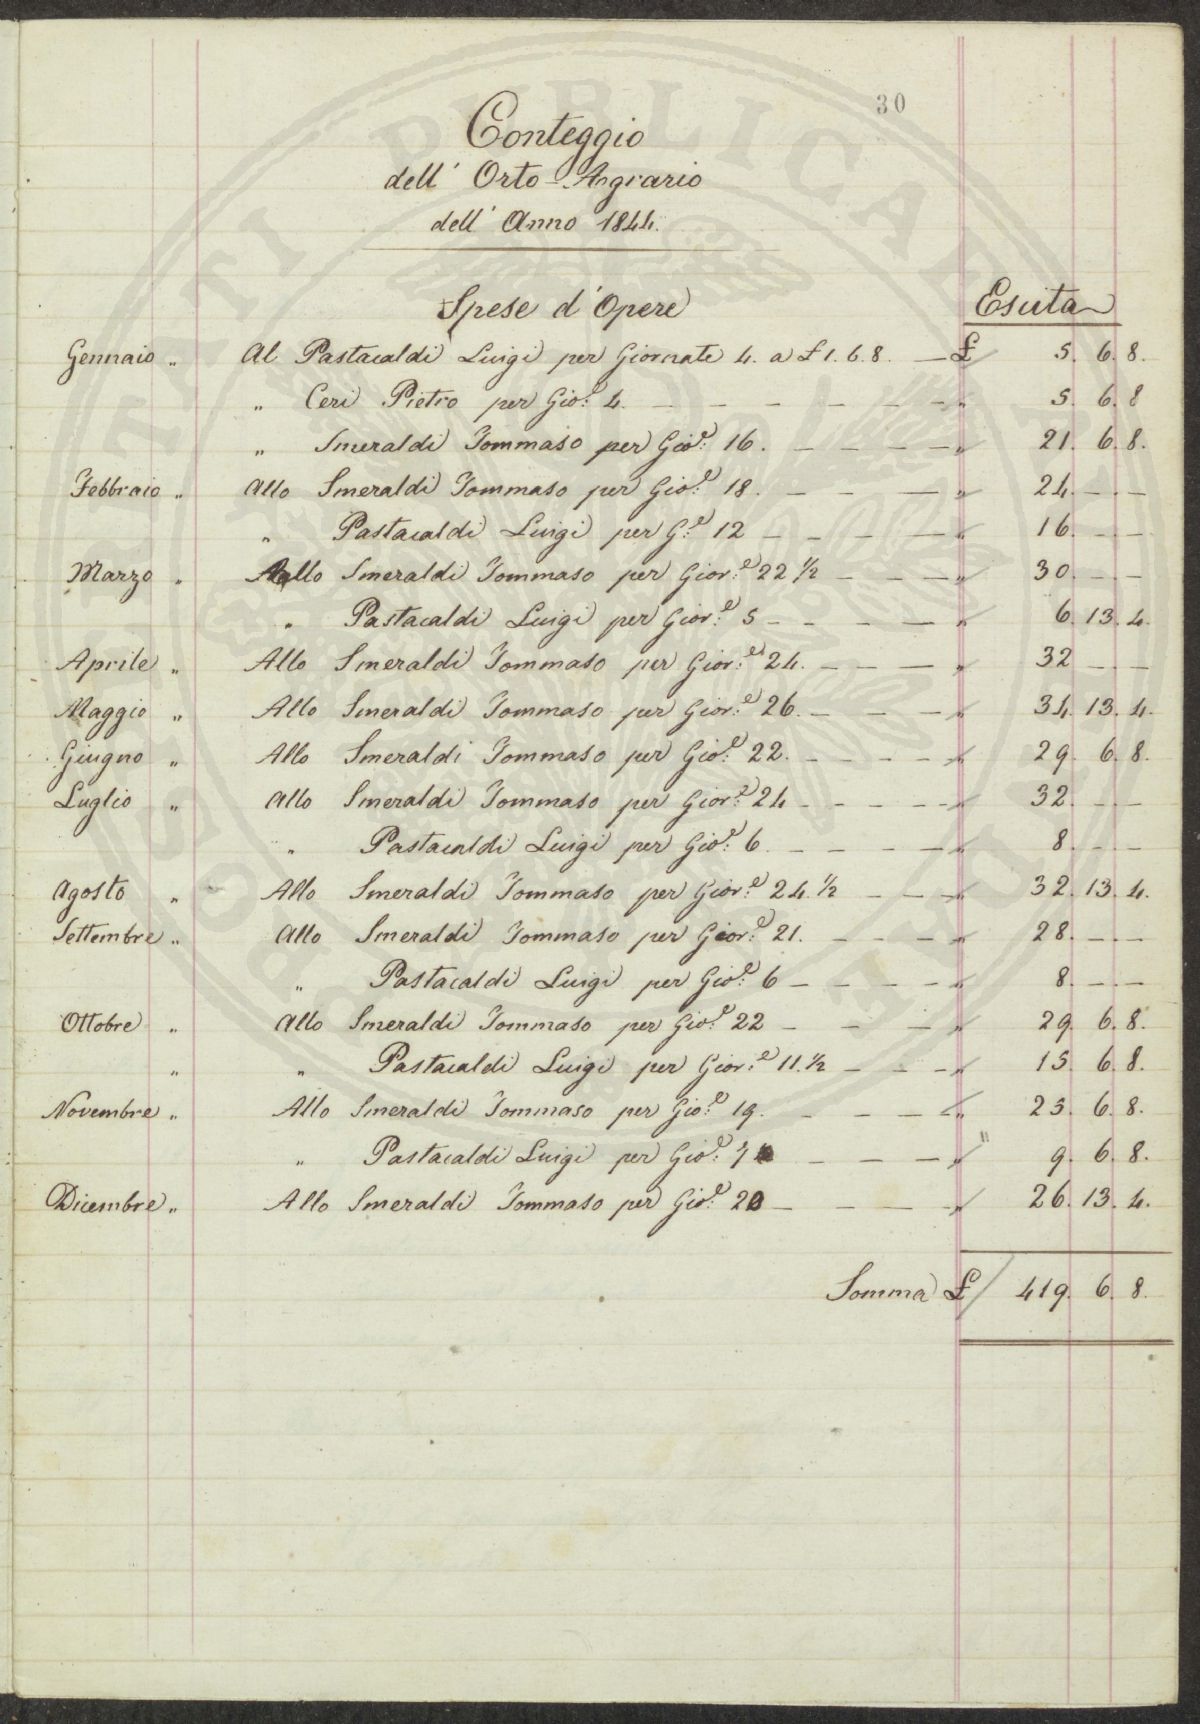 30
Conteggio
dell' Orto-Agrario
dell' Anno 1844.
Spese d'Opere Escita
Gennaio „ Al Pastacaldi Luigi per Giornate 4. a £ 1. 6. 8. — £ 5. 6. 8.
„ Ceri Pietro per Gio.e 4. — — — — — — — „ 5. 6. 8
„ Smeraldi Tommaso per Gio.e 16. — — — — „ 21. 6. 8.
Febbraio „ Allo Smeraldi Tommaso per Gio.e 18. — — — „ 24. — —
„ Pastacaldi Luigi per G.e 12 — — — — „ 16. — —
Marzo „ Allo Smeraldi Tommaso per Gior.e 22 ½ — — — „ 30. — —
„ Pastacaldi Luigi per Gior.e 5 — — — — „ 6. 13. 4.
Aprile „ Allo Smeraldi Tommaso per Gior.e 24. — — — „ 32 — —
Maggio „ Allo Smeraldi Tommaso per Gior.e 26. — — — — „ 34. 13. 4.
Giugno „ Allo Smeraldi Tommaso per Gio.e 22. — — — — „ 29. 6. 8.
Luglio „ Allo Smeraldi Tommaso per Gior.e 24 — — — — „ 32. — —
„ Pastacaldi Luigi per Gio.e 6 — — — — „ 8. — —
Agosto „ Allo Smeraldi Tommaso per Gior.e 24.½ — — — „ 32. 13. 4.
Settembre „ Allo Smeraldi Tommaso per Gior.e 21. — — — — „ 28. — —
„ Pastacaldi Luigi per Gio.e 6 — — — — „ 8. — —
Ottobre „ Allo Smeraldi Tommaso per Gio.e 22 — — — „ 29. 6. 8.
„ „ Pastacaldi Luigi per Gior.e 11.½ — — — „ 15. 6. 8.
Novembre „ Allo Smeraldi Tommaso per Gio.e 19. — — — — „ 25. 6. 8.
„ Pastacaldi Luigi per Gio.e 7 — — — — „ 9. 6. 8.
Dicembre „ Allo Smeraldi Tommaso per Gio.e 20 — — — — „ 26. 13. 4.
Somma £ 419. 6. 8.